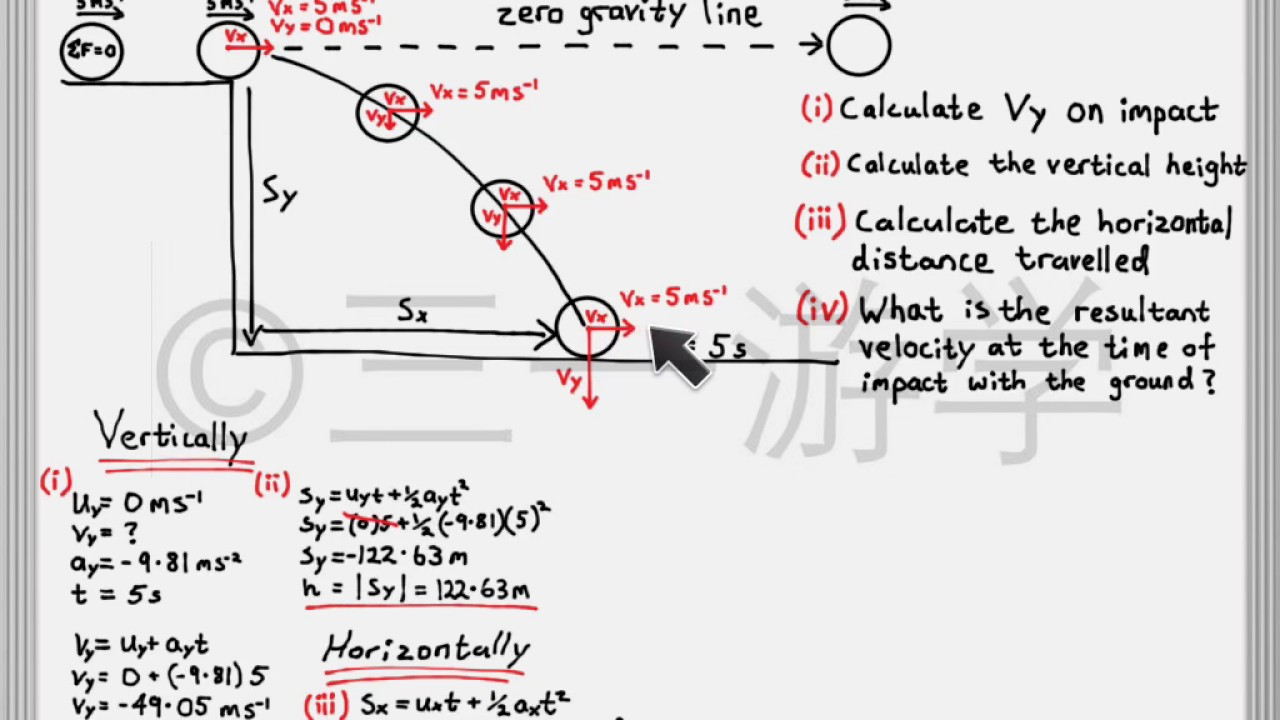 5ms⁻¹
5ms⁻¹
Vx = 5ms⁻¹
Vy = 0ms⁻¹
zero gravity line
ΣF=0
Vx
Vx
Vy
Vx = 5ms⁻¹
Vx
Vy
Vx = 5ms⁻¹
Sy
Sx
Vx
Vy
Vx = 5ms⁻¹
= 5s
(i) Calculate Vy on impact
(ii) Calculate the vertical height
(iii) Calculate the horizontal
distance travelled
(iv) What is the resultant
velocity at the time of
impact with the ground?
© 三一游学
Vertically
(i)
uy = 0ms⁻¹
vy = ?
ay = -9.81ms⁻²
t = 5s
Vy = uy + ayt
vy = 0 + (-9.81)5
Vy = -49.05 ms⁻¹
(ii)
Sy = uyt + ½ayt²
Sy = (0)5 + ½(-9.81)(5)²
Sy = -122.63m
h = |Sy| = 122.63m
Horizontally
(iii) Sx = uxt + ½axt²